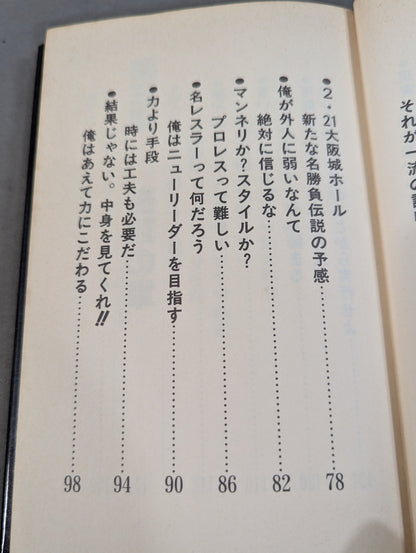 それが一流の証
●2・21大阪城ホール
新たな名勝負伝説の予感……………78
●俺が外人に弱いなんて
絶対に信じるな……………82
●マンネリか?スタイルか?
プロレスって難しい……………86
●名レスラーって何だろう
俺はニューリーダーを目指す……………90
●力より手段
時には工夫も必要だ……………94
●結果じゃない。中身を見てくれ!!
俺はあえて力にこだわる……………98